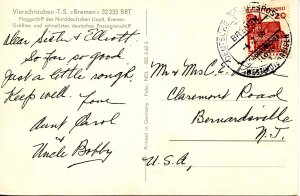 Vierschrauben-T.S. »Bremen« 32 335 BRT
Flaggschiff des Norddeutschen Lloyd, Bremen
Größtes und schnellstes deutsches Passagierschiff
Dear Sister & Elliott
So far so good
Just a little rough.
Keep well. Love
Aunt Carol
&
Uncle Bobby
Printed in Germany
Mr & Mrs C. E.
Claremont Road
Bernardsville
N.J.
U.S.A,
DEUTSCHE
BREMEN